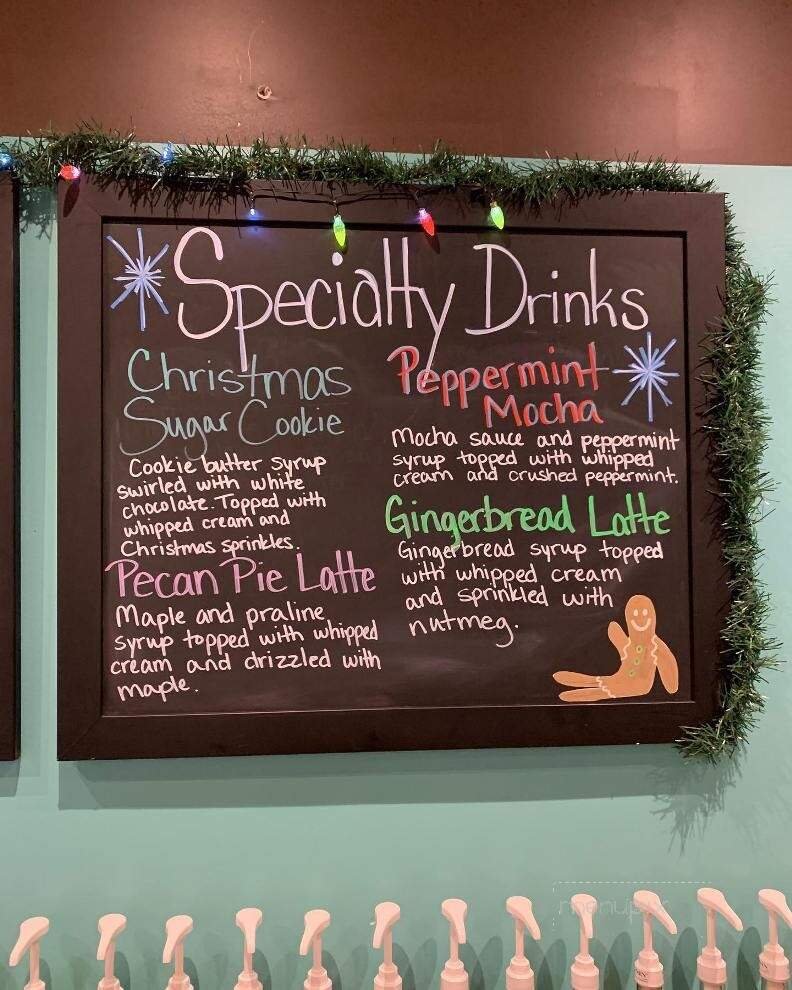 Specialty Drinks
Christmas
Sugar Cookie
Cookie butter syrup
swirled with white
chocolate. Topped with
whipped cream and
Christmas sprinkles.
Pecan Pie Latte
Maple and praline
syrup topped with whipped
cream and drizzled with
maple.
Peppermint
Mocha
Mocha sauce and peppermint
syrup topped with whipped
cream and crushed peppermint.
Gingerbread Latte
Gingerbread syrup topped
with whipped cream
and sprinkled with
nutmeg.